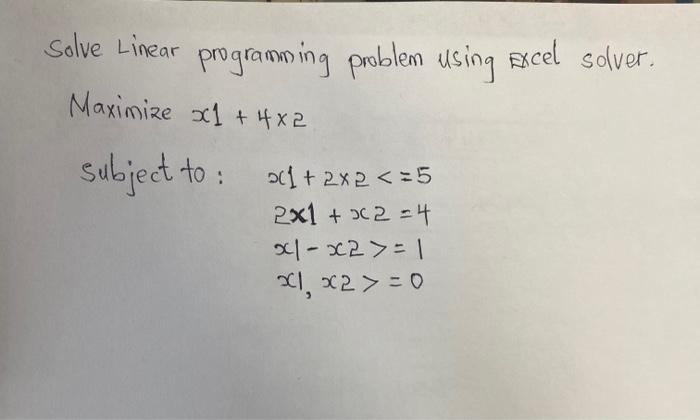 Solve Linear programming problem using Excel solver.
Maximize x1 + 4x2
subject to : x1 + 2x2 <= 5
2x1 + x2 = 4
x1 - x2 >= 1
x1, x2 >= 0